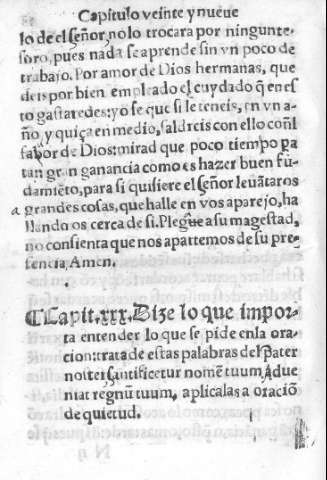 Capitulo veinte y nueve
lo de el señor, no lo trocara por ningun te-
soro, pues nada se aprende sin vn poco de
trabajo. Por amor de Dios hermanas, que
deis por bien empleado el cuydado q̃ en es
to gastaredes: yo se que si le teneis, en vn a-
ño, y quiça en medio, saldreis con ello con l
fabor de Dios: mirad que poco tiempo pa
tan gran ganancia como es hazer buen fũ-
damẽto, para si quisiere el señor leuãtaros
a grandes cosas, que halle en vos aparejo, ha
llando os cerca de si. Plegue a su magestad,
no consienta que nos apartemos de su pre-
sencia, Amen.
¶Capit. xxx. Dize lo que impor-
ta entender lo que se pide en la ora-
cion: trata de estas palabras del Pater
noster, sanctificetur nomẽ tuum, Adue
niat regnũ tuum, aplicalas a oraciõ
de quietud.